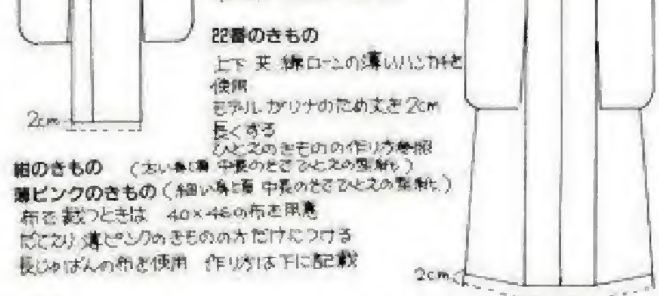 22番のきもの
上下 共 綿ローンの薄いハンカチを
使用
モデルがリナのため丈を2cm
長くする
ひとえのきものの作り方参照
2cm
紺のきもの (太い身頃 中長のそで ひとえの型紙)
薄ピンクのきもの (細い身頃 中長のそで ひとえの型紙)
布を裁つときは 40×46の布を用意
だてえり 薄ピンクのきものの方だけにつける
長じゅばんの布を使用 作り方は下に記載
2cm